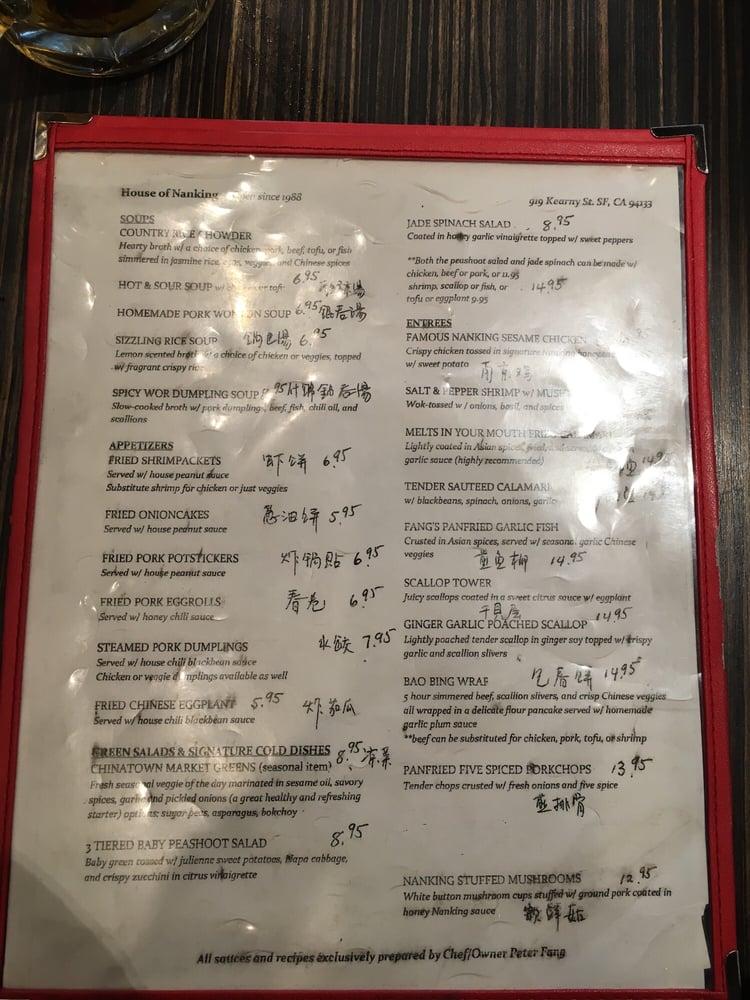 House of Nanking since 1988
919 Kearny St. SF, CA 94133
SOUPS
COUNTRY RICE CHOWDER
Hearty broth w/ a choice of chicken, pork, beef, tofu, or fish
simmered in jasmine rice, veggies, and Chinese spices
HOT & SOUR SOUP w/ 6.95
HOMEMADE PORK WONTON SOUP 6.95
SIZZLING RICE SOUP 鍋巴湯 6.95
Lemon scented broth a choice of chicken or veggies, topped
w/ fragrant crispy rice
SPICY WOR DUMPLING SOUP
Slow-cooked broth w/ pork dumplings, beef, fish, chili oil, and
scallions
APPETIZERS
FRIED SHRIMPACKETS 虾饼 6.95
Served w/ house peanut sauce
Substitute shrimp for chicken or just veggies
FRIED ONIONCAKES 葱油饼 5.95
Served w/ house peanut sauce
FRIED PORK POTSTICKERS 炸锅貼 6.95
Served w/ house peanut sauce
FRIED PORK EGGROLLS 春卷 6.95
Served w/ honey chili sauce
STEAMED PORK DUMPLINGS 水餃 7.95
Served w/ house chili blackbean sauce
Chicken or veggie dumplings available as well
FRIED CHINESE EGGPLANT 5.95 炸茄瓜
Served w/ house chili blackbean sauce
GREEN SALADS & SIGNATURE COLD DISHES
CHINATOWN MARKET GREENS (seasonal item) 8.95 凉菜
Fresh seasonal veggie of the day marinated in sesame oil, savory
spices, garlic and pickled onions (a great healthy and refreshing
starter) options: sugar peas, asparagus, bokchoy
3 TIERED BABY PEASHOOT SALAD 8.95
Baby green tossed w/ julienne sweet potatoes, Napa cabbage,
and crispy zucchini in citrus vinaigrette
JADE SPINACH SALAD 8.95
Coated in honey garlic vinaigrette topped w/ sweet peppers
**Both the peashoot salad and jade spinach can be made w/
chicken, beef or pork, or 11.95
shrimp, scallop or fish, or 14.95
tofu or eggplant 9.95
ENTREES
FAMOUS NANKING SESAME CHICKEN
Crispy chicken tossed in signature Nanking
w/ sweet potato 南京鸡
SALT & PEPPER SHRIMP w/
Wok-tossed w/ onions, basil, and spices
MELTS IN YOUR MOUTH FRIED CALAMARI
Lightly coated in Asian spices,
garlic sauce (highly recommended) 14.95
TENDER SAUTEED CALAMARI
w/ blackbeans, spinach, onions, garlic
FANG'S PANFRIED GARLIC FISH
Crusted in Asian spices, served w/ seasonal garlic Chinese
veggies 煎鱼柳 14.95
SCALLOP TOWER
Juicy scallops coated in a sweet citrus sauce w/ eggplant
14.95
GINGER GARLIC POACHED SCALLOP
Lightly poached tender scallop in ginger soy topped w/ crispy
garlic and scallion slivers
BAO BING WRAP 14.95
5 hour simmered beef, scallion slivers, and crisp Chinese veggies
all wrapped in a delicate flour pancake served w/ homemade
garlic plum sauce
**beef can be substituted for chicken, pork, tofu, or shrimp
PANFRIED FIVE SPICED PORKCHOPS 13.95
Tender chops crusted w/ fresh onions and five spice
煎排骨
NANKING STUFFED MUSHROOMS 12.95
White button mushroom cups stuffed w/ ground pork coated in
honey Nanking sauce
All sauces and recipes exclusively prepared by Chef/Owner Peter Fang